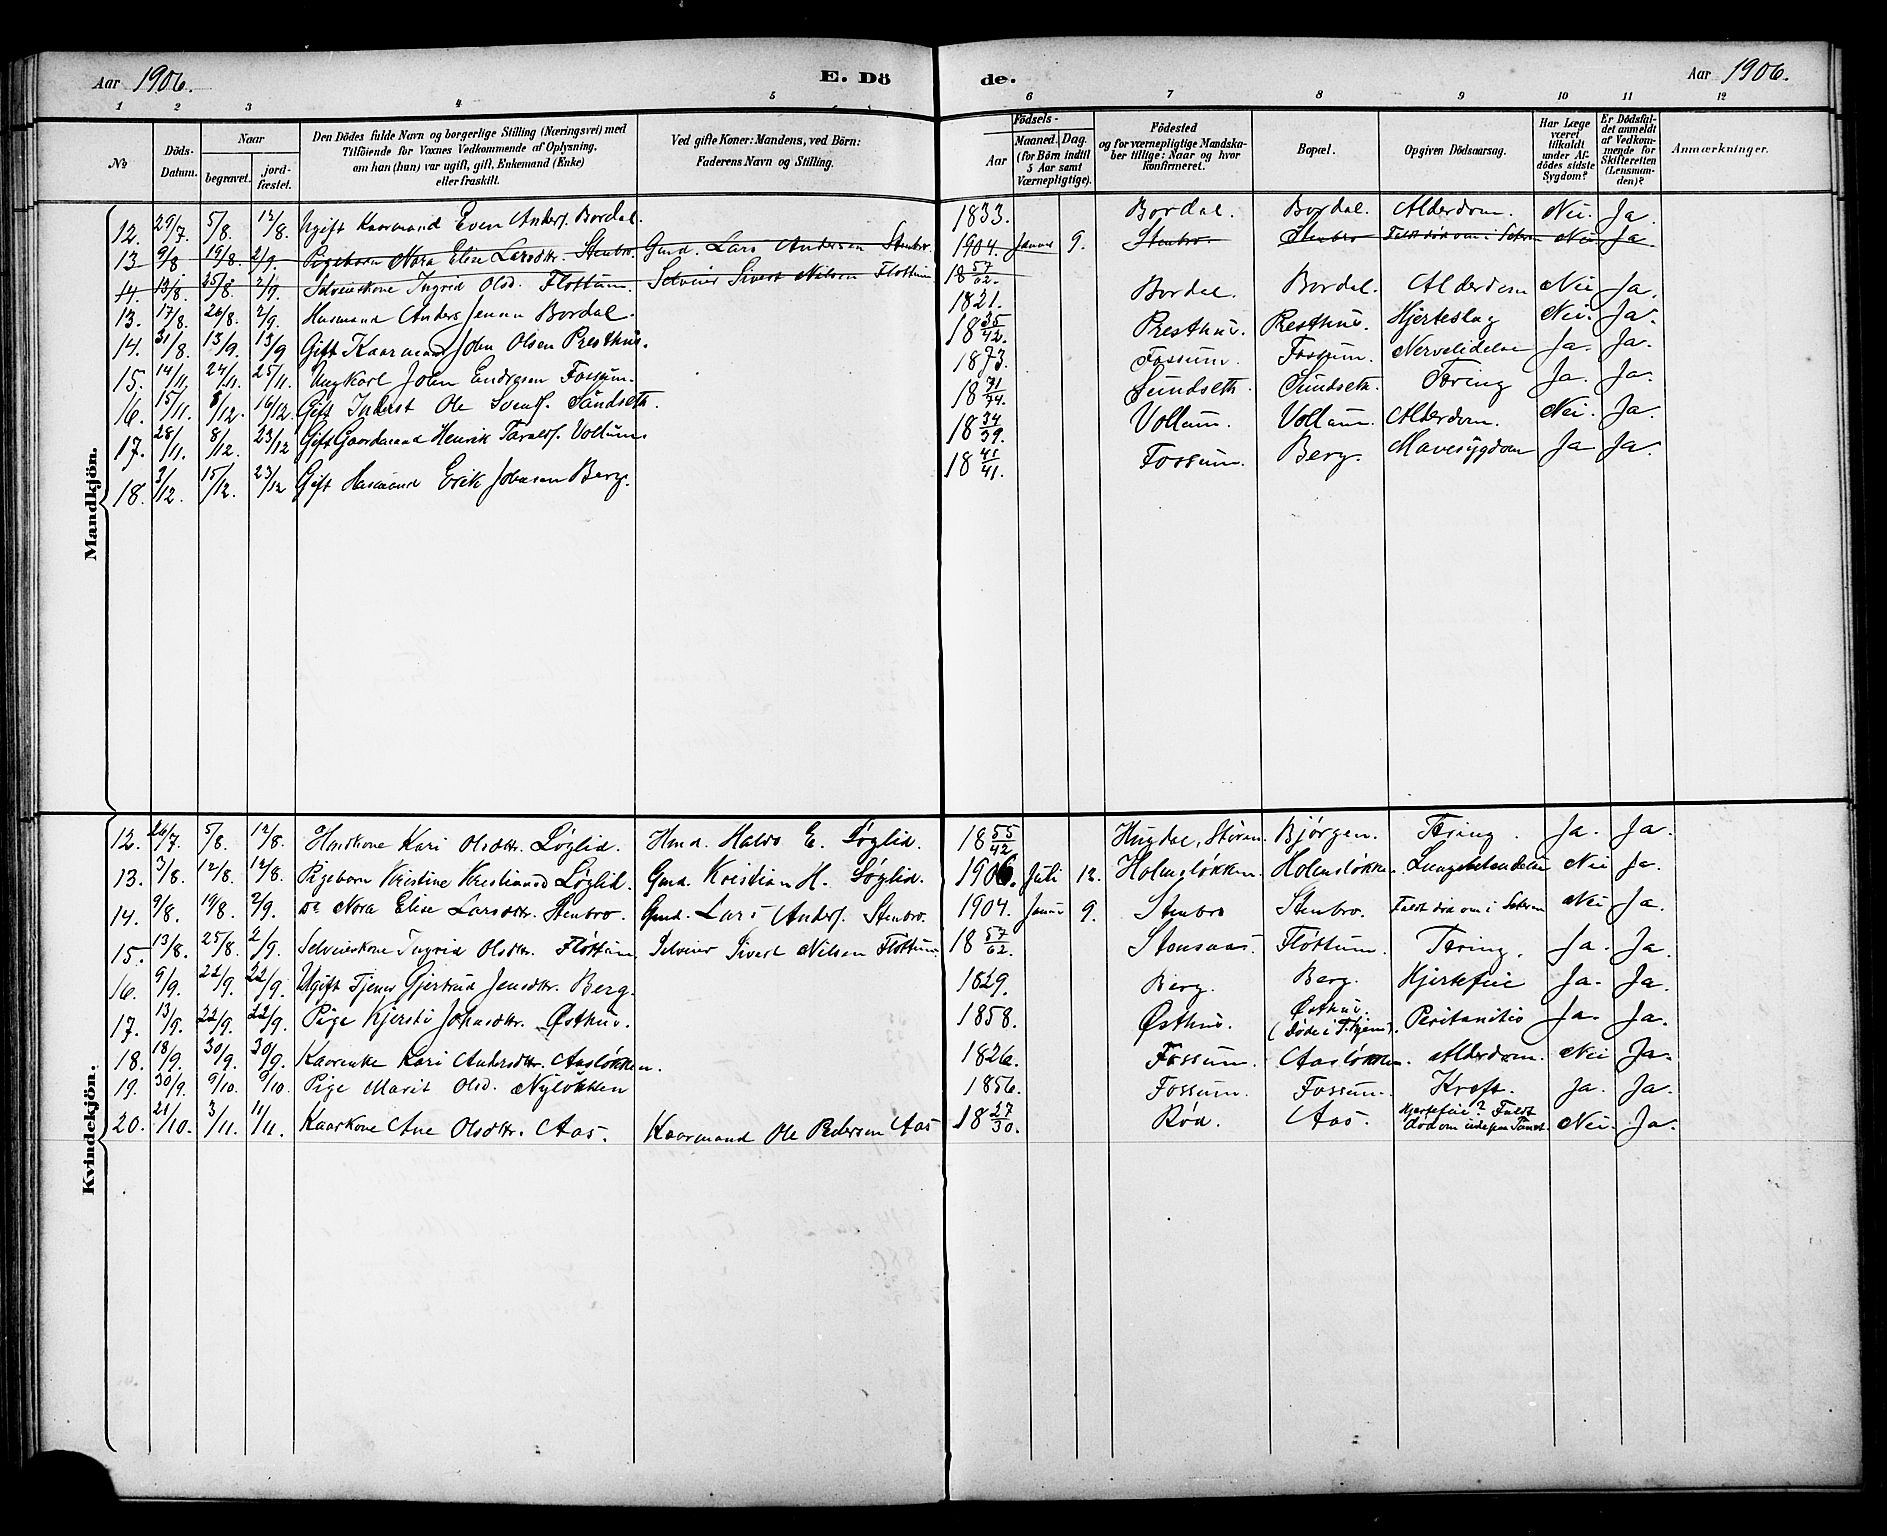 Aar 1906. E. Dö de. Aar 1906.
1 2 3 4 5 6 7 8 9 10 11 12
No
Döds-Datum.
Naar
begravet.
jordfæstet.
Den Dödes fulde Navn og borgerlige Stilling (Næringsvei) med
Tilföiende for Voxnes Vedkommende af Oplysning.
om han (hun) var ugift, gift, Enkemand (Enke)
eller fraskilt.
Ved gifte Koner: Mandens, ved Börn:
Faderens Navn og Stilling.
Födsels-
Aar
Maaned. Dag.
(for Börn indtil
5 Aar samt
Værnepligtige).
Födested
og for værnepligtige Mandska-
ber tillige: Naar og hvor
konfirmeret.
Bopæl.
Opgiven Dödsaarsag.
Har Læge
været
tilkaldt
under Af-
dödes sidste
Sygdom?
Er Dödsfal-
det anmeldt
af Vedkom-
mende for
Skifteretten
(Lensman-
den)?
Anmærkninger.
Mandkjön.
12. 29/7. 5/8. 12/8. Ugift Kaarmand Even Anders. Bordal. 1833. Bordal. Bordal. Alderdom. Nei. Ja.
13 9/8 19/8. 2/9. Pigebarn Nora Elise Larsdtr. Stenbro. Gmd. Lars Andersen Stenbro. 1904. Januar 9. Stenbro. Stenbro Faldt død om i Nei Ja.
14. 13/8. 25/8. 2/9. Selveierkone Ingrid Olsd. Flottum. Selveier Sivert Nilsen Flottum 18 57/62.
13. 17/8. 26/8. 2/9. Husmand Anders Jensen Bordal. 1821. Bordal. Bordal. Alderdom Nei Ja.
14. 31/8. 13/9. 13/9 Gift Kaarmand John Olsen Presthus. 18 35/42. Presthus. Presthus. Hjerteslag Nei. Ja.
15. 14/11. 24/11. 25/11. Ungkarl John Endresen Fossum. 1873. Fossum. Fossum. Nervelidelse Ja. Ja.
16. 15/11. 8/12. 16/12. Gift Inderst Ole Svends. Sundseth. 18 71/74. Sundseth. Sundseth. Tæring Ja. Ja.
17. 28/11. 8/12. 23/12 Gift Gaardmand Henrik Taralds. Vollum. 18 34/39. Vollum. Vollum. Alderdom. Nei. Ja.
18. 3/12. 15/12. 23/12 Gift Husmand Erik Johnsen Berg. 18 41. Fossum. Berg. Mavesygdom Ja Ja.
Kvindekjön.
12. 26/7. 5/8. 12/8. Huskone Kari Olsdtr. Løglid. Hmd. Haldo E. Løglid. 18 55/42 Hugdal, Støren. Bjørgen. Tæring. Ja. Ja.
13. 3/8. 12/8. 12/8. Pigebarn Kristine Kristiansd Løglid. Gmd. Kristian H. Løglid. 1906. Juli 12. Holmsløkken. Holmsløkken. Lungebetændelse Nei Ja.
14. 9/8. 19/8. 2/9. Do Nora Elise Larsdtr. Stenbro. Gmd. Lars Anders. Stenbro. 1904. Januar 9. Stenbro Stenbro. Faldt død om i Nei Ja.
15. 13/8. 25/8. 2/9. Selveierkone Ingrid Olsdtr. Fløttum. Selveier Sivert Nilsen Flottum. 18 57/62. Stensaas. Fløttum. Tæring. Ja. Ja.
16. 9/9. 22/9. 22/9. Ugift Tjener Gjertrud Jensdtr. Berg. 1829. Berg. Berg. Hjertefeil Ja. Ja.
17. 13/9. 22/9. 22/9. Pige Kjersti Johnsdtr. Østhus. 1858. Østhus. Østhus. (døde i T.hjem). Peritonitis Ja. Ja.
18. 18/9. 30/9. 30/9. Kaarenke Kari Andersdtr. Aasløkken. 1826. Fossum. Aasløkken. Alderdom. Nei Ja.
19. 30/9. 9/10. 9/10. Pige Marit Olsd. Nyløkken 1856. Fossum. Fossum. Kreft. Ja. Ja.
20. 21/10. 3/11. 11/11. Kaarkone Ane Olsdtr. Aas. Kaarmand Ole Pedersen Aas 18 27/30. Rød. Aas. Hjertefeil? Faldt død om Nei. Ja.